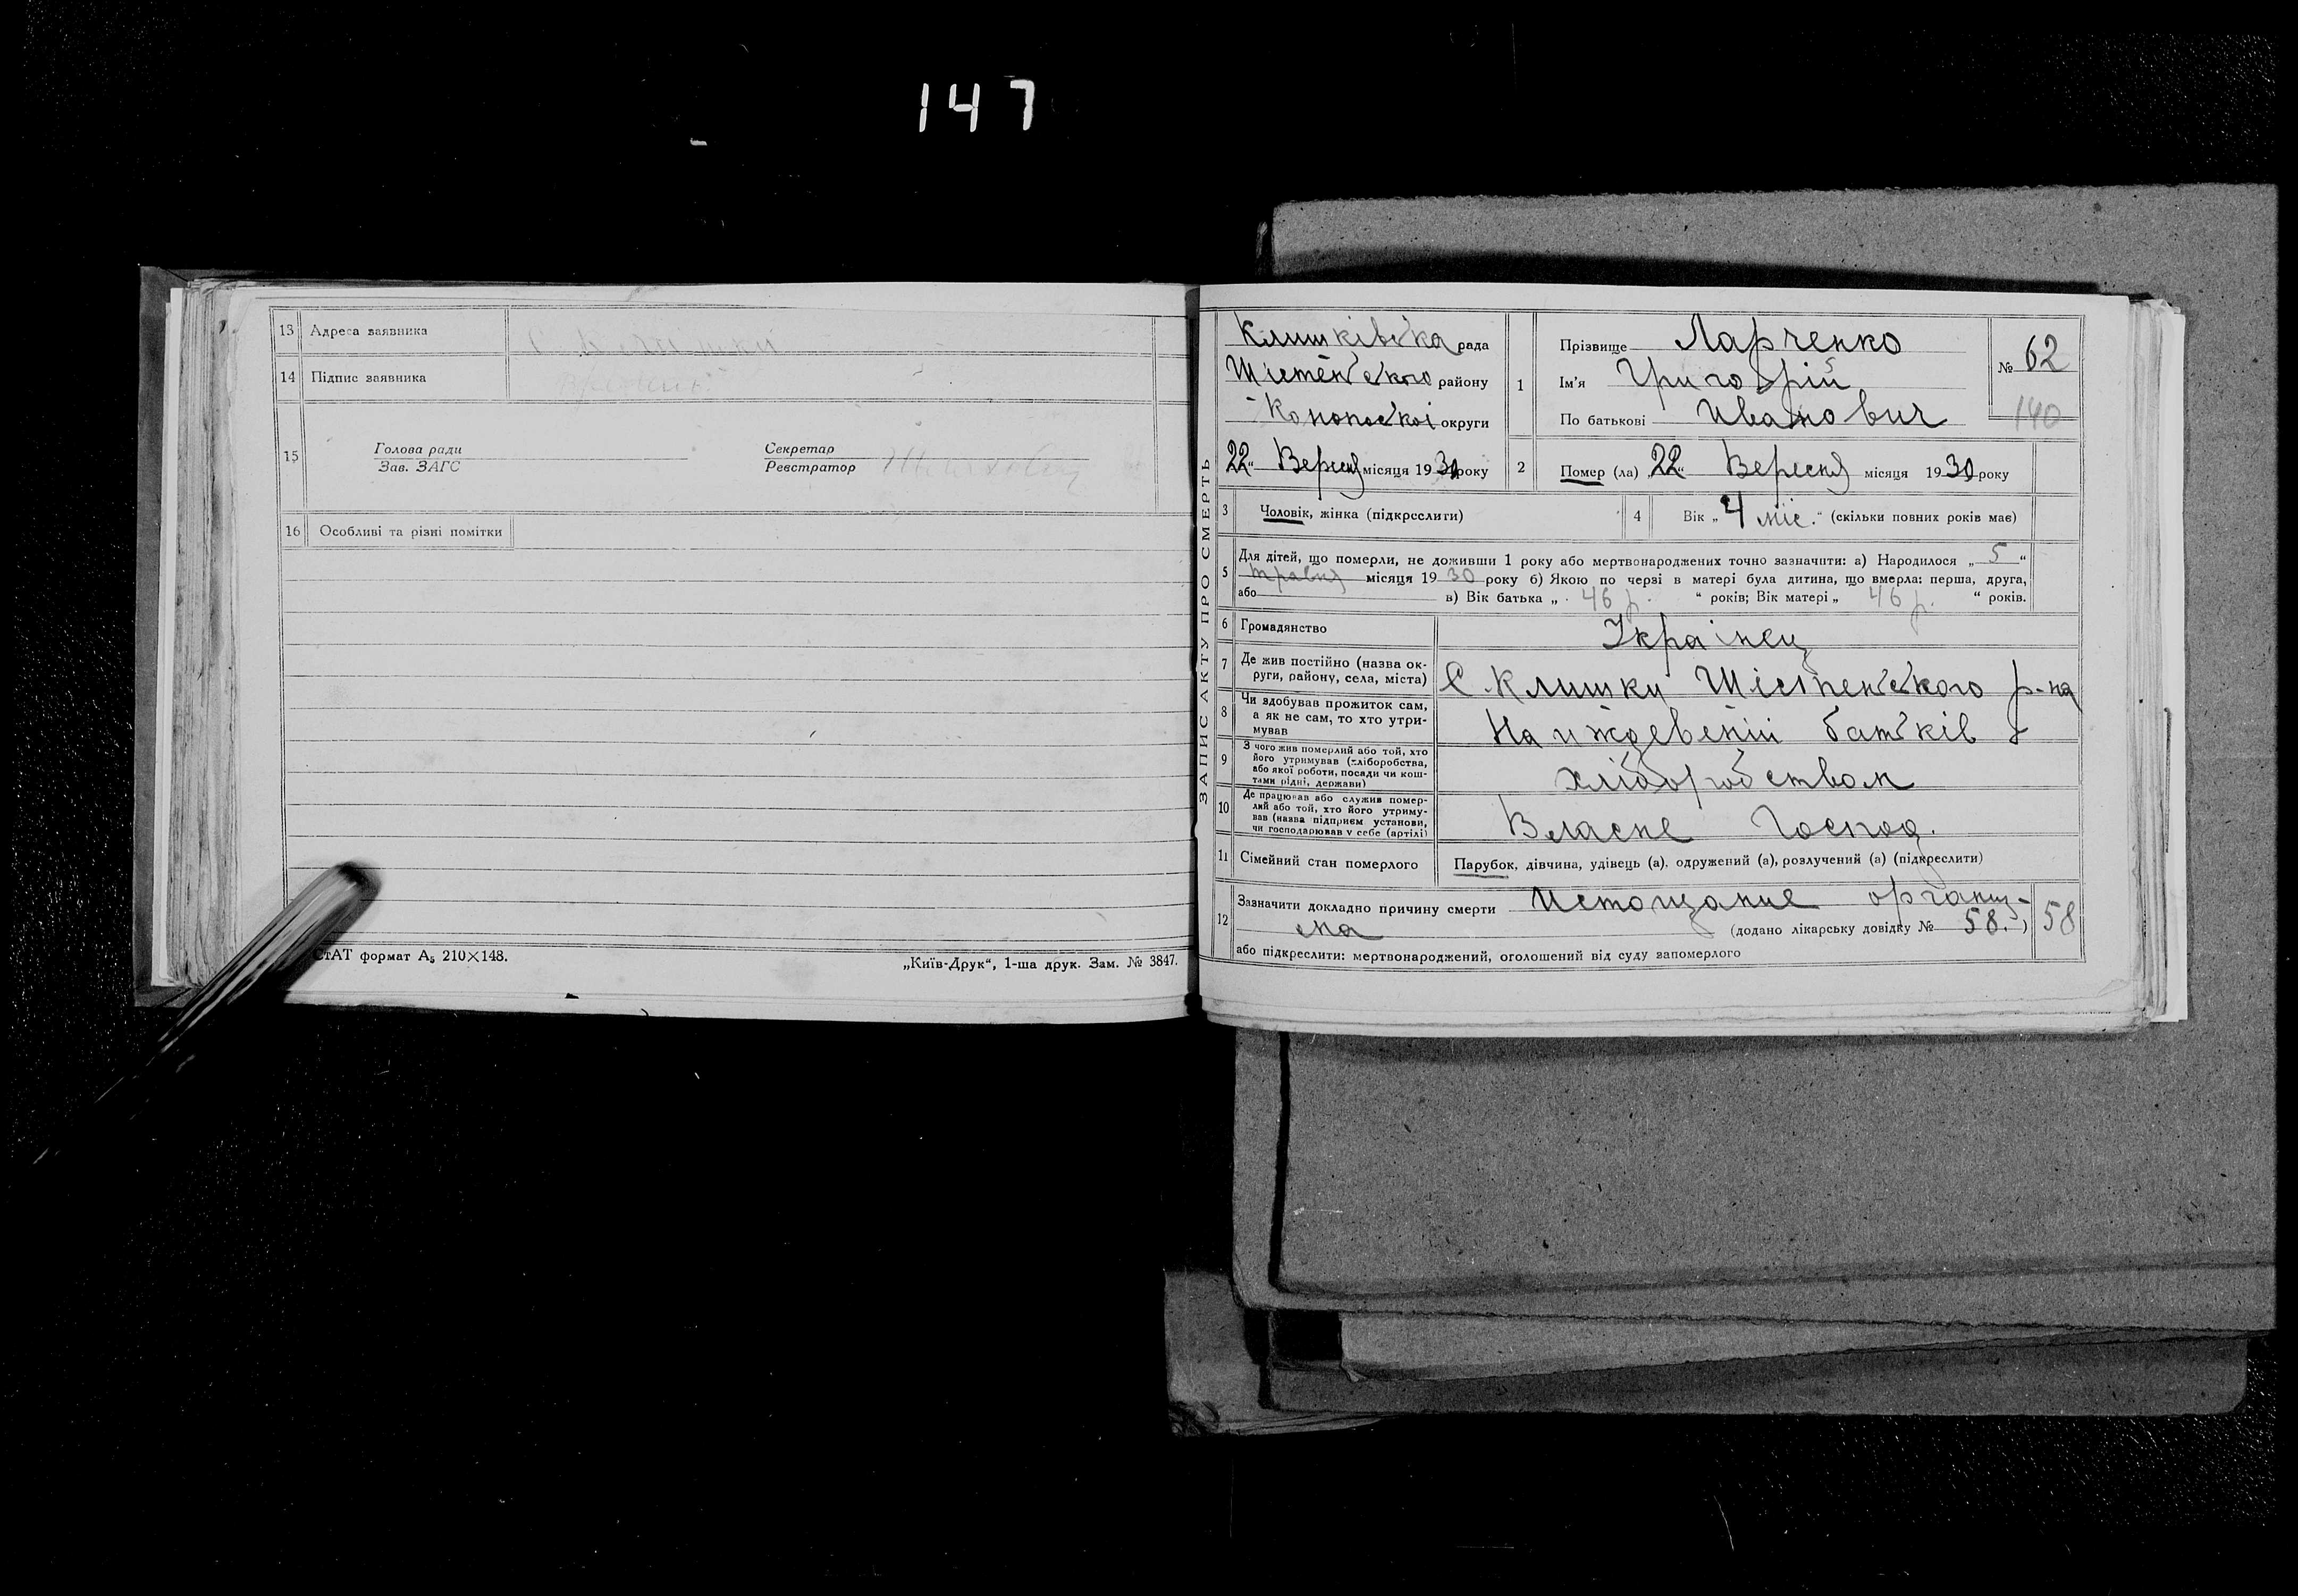 147
13 Адреса заявника
14 Підпис заявника
15 Голова ради Секретар
Зав. ЗАГС Реєстратор
16 Особливі та різні помітки
СтАТ формат А₅ 210×148.
„Київ-Друк“, 1-ша друк. Зам. № 3847.
ЗАПИС АКТУ ПРО СМЕРТЬ
Клишківська рада
Шістенського району
Конотоської округи
22“ Вересня місяця 1930 року
1 Прізвище Ларченко
Ім'я Григорій
По батькові Иванович
№ 62
140
2 Помер (ла) „22“ Вересня місяця 1930 року
3 Чоловік, жінка (підкреслити)
4 Вік „4 міс.“ (скільки повних років має)
5 Для дітей, що померли, не доживши 1 року або мертвонароджених точно зазначити: а) Народилося „5“
травня місяця 1930 року б) Якою по черзі в матері була дитина, що вмерла: перша, друга,
або в) Вік батька „46 р.“ років; Вік матері „46 р.“ років.
6 Громадянство Українец
7 Де жив постійно (назва ок-
руги, району, села, міста) С. Клишки Шістенського р-на
8 Чи здобував прожиток сам,
а як не сам, то хто утри-
мував На иждевеніи батьків
9 З чого жив померлий або той, хто
його утримував (хліборобства,
або якої роботи, посади чи кош-
тами рідні, держави) хліборобством
10 Де працював або служив помер-
лий або той, хто його утриму-
вав (назва підприєм установи,
чи господарював у себе (артілі) Власне Господ.
11 Сімейний стан померлого Парубок, дівчина, удівець (а), одружений (а), розлучений (а) (підкреслити)
12 Зазначити докладно причину смерти Истощание организ-
ма (додано лікарську довідку № 58.) 58
або підкреслити: мертвонароджений, оголошений від суду запомерлого